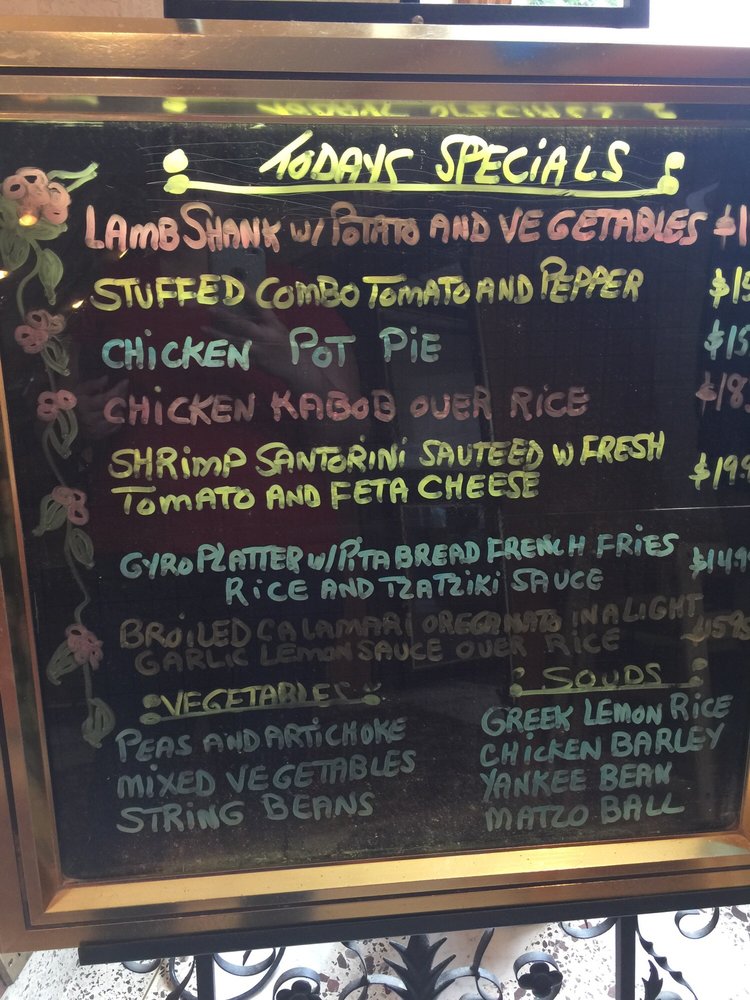 TODAYS SPECIALS
LAMB SHANK W/ POTATO AND VEGETABLES $1
STUFFED COMBO TOMATO AND PEPPER $15
CHICKEN POT PIE $15
CHICKEN KABOB OVER RICE $18.
SHRIMP SANTORINI SAUTEED W FRESH
TOMATO AND FETA CHEESE $19.9
GYRO PLATTER W/ PITA BREAD FRENCH FRIES $14.9
RICE AND TZATZIKI SAUCE
BROILED CALAMARI OREGANATO IN A LIGHT
GARLIC LEMON SAUCE OVER RICE
VEGETABLES
PEAS AND ARTICHOKE
MIXED VEGETABLES
STRING BEANS
SOUDS
GREEK LEMON RICE
CHICKEN BARLEY
YANKEE BEAN
MATZO BALL